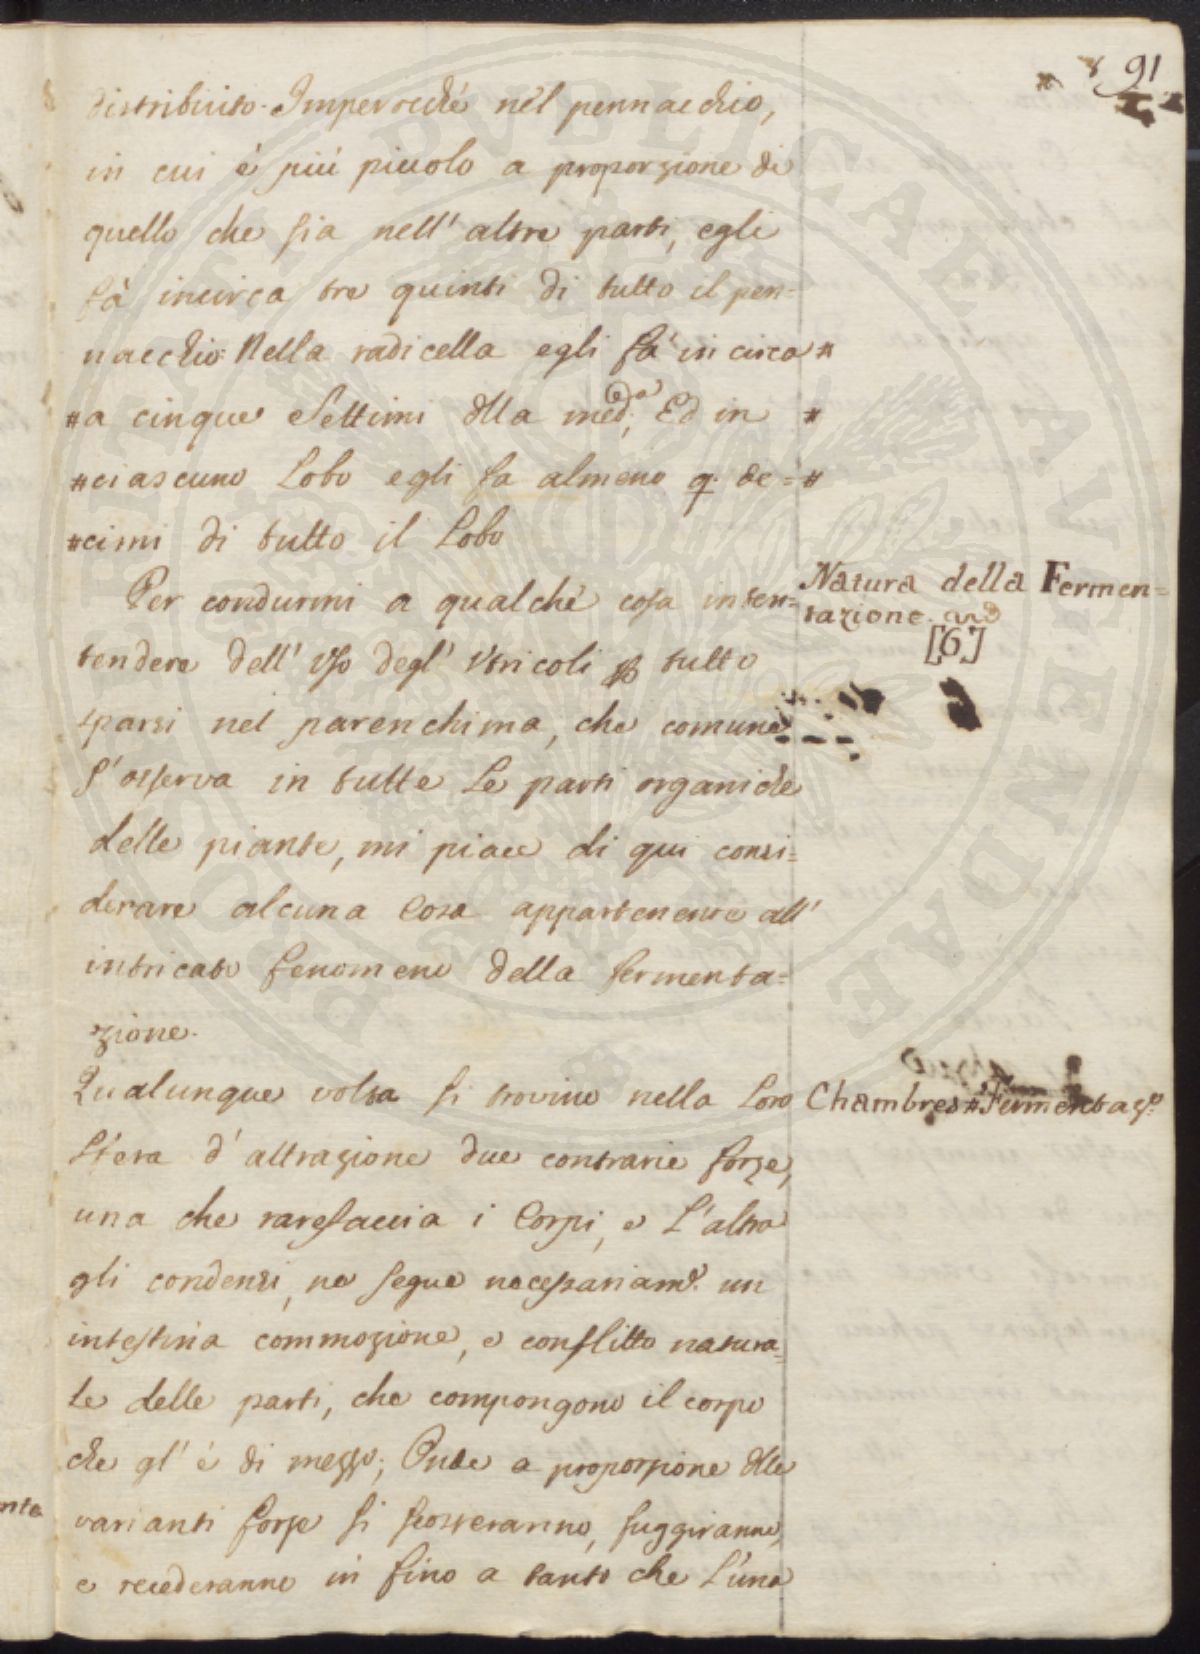 91
distribuito. Imperocché nel pennacchio,
in cui è piú piccolo a proporzione di
quello che sia nell' altre parti, egli
fà incirca tre quinti di tutto il pen=
nacchio: Nella radicella egli fà in circa #
#a cinque Settimi dlla med.ª; Ed in #
#ciascuno Lobo egli fa almeno q. de= #
#cimi di tutto il Lobo
Per condurmi a qualche cosa inten=
tendere dell' uso degl' Utricoli p tutto
sparsi nel parenchima, che comune
s' osserva in tutte le parti organiche
delle piante, mi piace di qui consi=
derare alcuna cosa appartenente all'
intricato fenomeno della fermenta=
zione.
Qualunque volta si trovino nella loro
sfera d' attrazione due contrarie forze,
una che rarefaccia i Corpi, e l'altra
gli condensi, ne segue necessariamẽ. un
intestina commozione, e conflitto natura=
le delle parti, che compongono il corpo
che gl' è di mezzo; Onde a proporzione dlle
varianti forze si scosteranno, fuggiranno,
e recederanno in fino a tanto che l'una
Natura della Fermen=
tazione.
[6.]
Chambres # Fermentazº.
nta
PUBLICAE